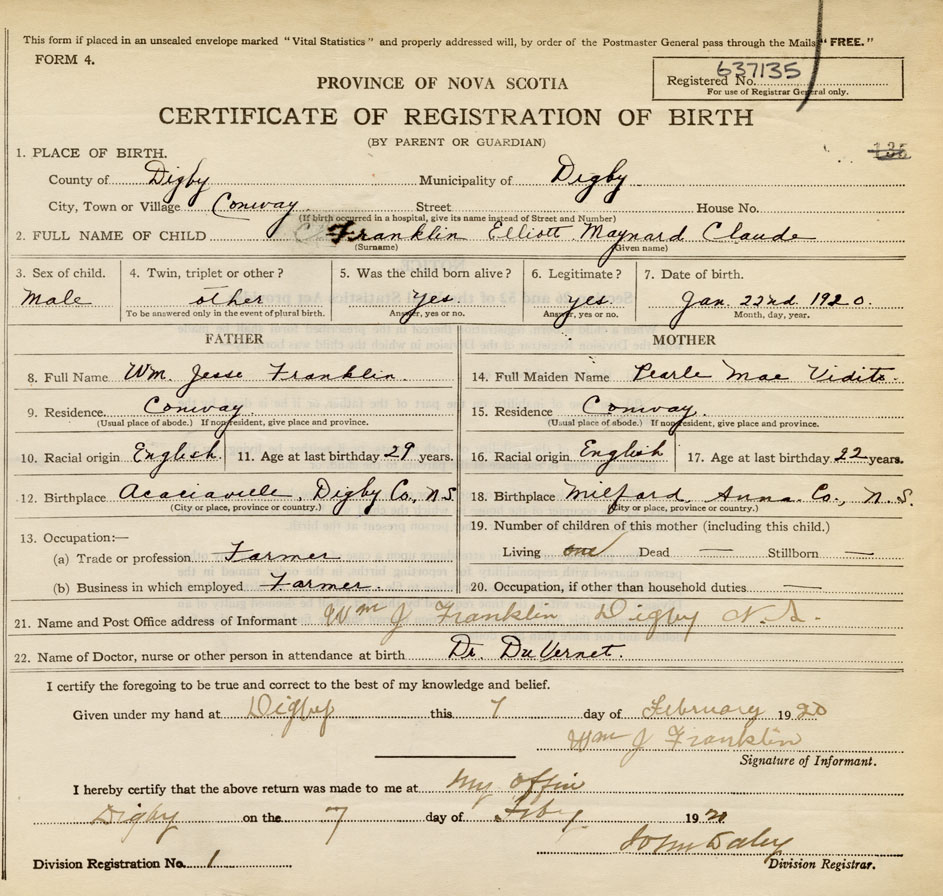 This form if placed in an unsealed envelope marked "Vital Statistics" and properly addressed will, by order of the Postmaster General pass through the Mails "FREE."
FORM 4.
637135
Registered No.
For use of Registrar General only.
PROVINCE OF NOVA SCOTIA
CERTIFICATE OF REGISTRATION OF BIRTH
(BY PARENT OR GUARDIAN)
1. PLACE OF BIRTH.
County of Digby Municipality of Digby
City, Town or Village Conway Street House No.
(If birth occurred in a hospital, give its name instead of Street and Number)
2. FULL NAME OF CHILD Franklin Elliott Maynard Claude
(Surname) (Given name)
3. Sex of child. 4. Twin, triplet or other? 5. Was the child born alive? 6. Legitimate? 7. Date of birth.
Male other Yes. yes Jan. 22nd 1920.
To be answered only in the event of plural birth. Answer, yes or no. Answer, yes or no. Month, day, year.
FATHER MOTHER
8. Full Name Wm. Jesse Franklin. 14. Full Maiden Name Pearle Mae Vidito.
9. Residence. Conway. 15. Residence Conway.
(Usual place of abode.) If nonresident, give place and province. (Usual place of abode.) If nonresident, give place and province.
10. Racial origin English. 11. Age at last birthday 29 years. 16. Racial origin English 17. Age at last birthday 22 years.
12. Birthplace Acaciaville, Digby Co., N.S. 18. Birthplace Milford, Anna. Co., N.S.
(City or place, province or country.) (City or place, province or country.)
13. Occupation:— 19. Number of children of this mother (including this child.)
(a) Trade or profession Farmer Living one Dead — Stillborn —
(b) Business in which employed Farmer. 20. Occupation, if other than household duties —
21. Name and Post Office address of Informant Wm J Franklin Digby N.S.
22. Name of Doctor, nurse or other person in attendance at birth Dr. DuVernet.
I certify the foregoing to be true and correct to the best of my knowledge and belief.
Given under my hand at Digby this 7 day of February 1920
Wm J Franklin
Signature of Informant.
I hereby certify that the above return was made to me at My Office
Digby on the 7 day of Feby 1920
John Daley
Division Registration No. 1 Division Registrar.